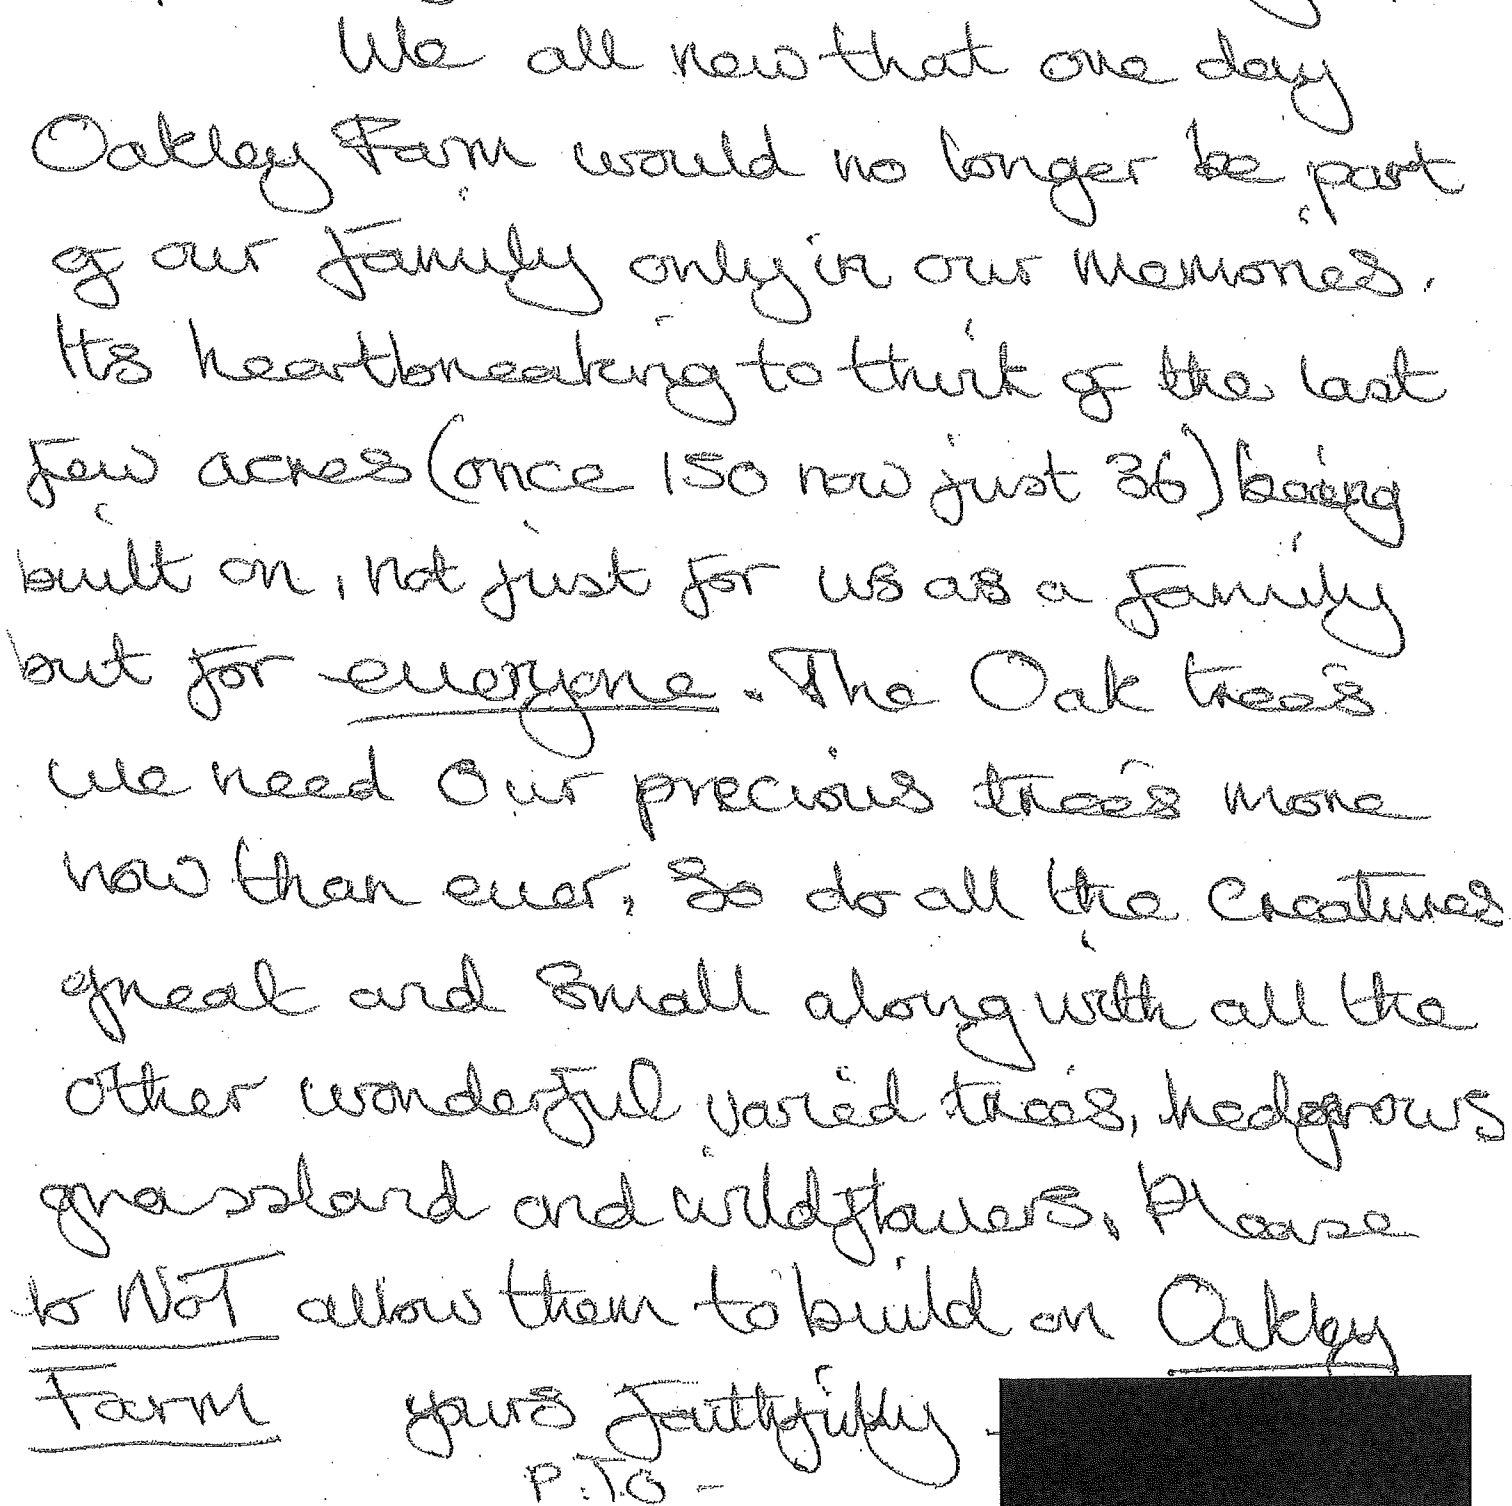 We all new that one day
Oakley Farm would no longer be part
of our family only in our memories.
Its heartbreaking to think of the last
few acres (once 150 now just 36) being
built on, not just for us as a family
but for everyone. The Oak trees
we need our precious trees more
now than ever, So do all the Creatures
great and small along with all the
other wonderful varied trees, hedgrows
grassland and wildflowers, Please
to NOT allow them to build on Oakley
Farm yours faithfully -
P.T.O -